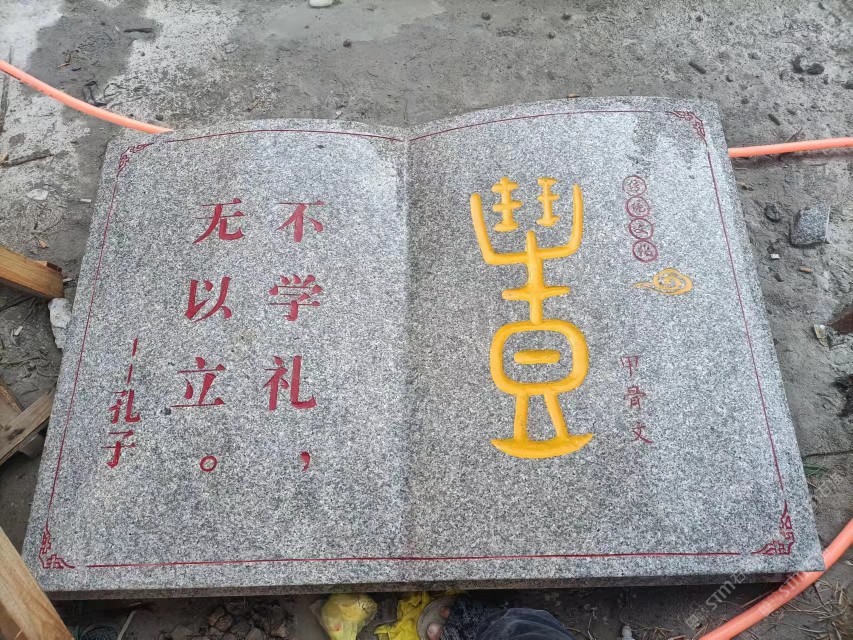 甲骨文
不学礼，
无以立。
——孔子